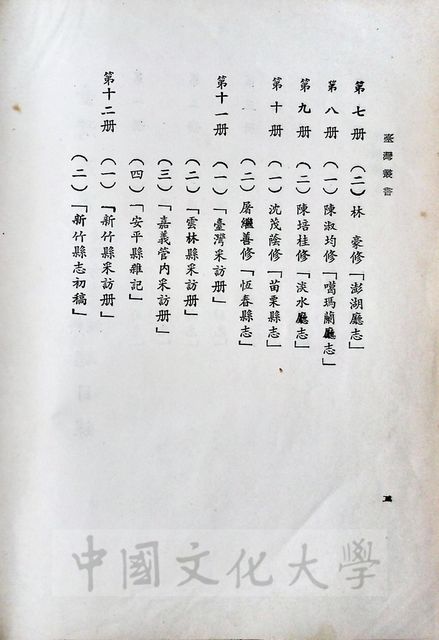 臺灣叢書
第七册 (二) 林　豪修「澎湖廳志」
第八册 (一) 陳淑均修「噶瑪蘭廳志」
第九册 (二) 陳培桂修「淡水廳志」
第十册 (一) 沈茂蔭修「苗栗縣志」
(二) 屠繼善修「恆春縣志」
第十一册 (一)「臺灣采訪册」
(二)「雲林縣采訪册」
(三)「嘉義管內采訪册」
(四)「安平縣雜記」
第十二册 (一)「新竹縣采訪册」
(二)「新竹縣志初稿」
中國文化大學